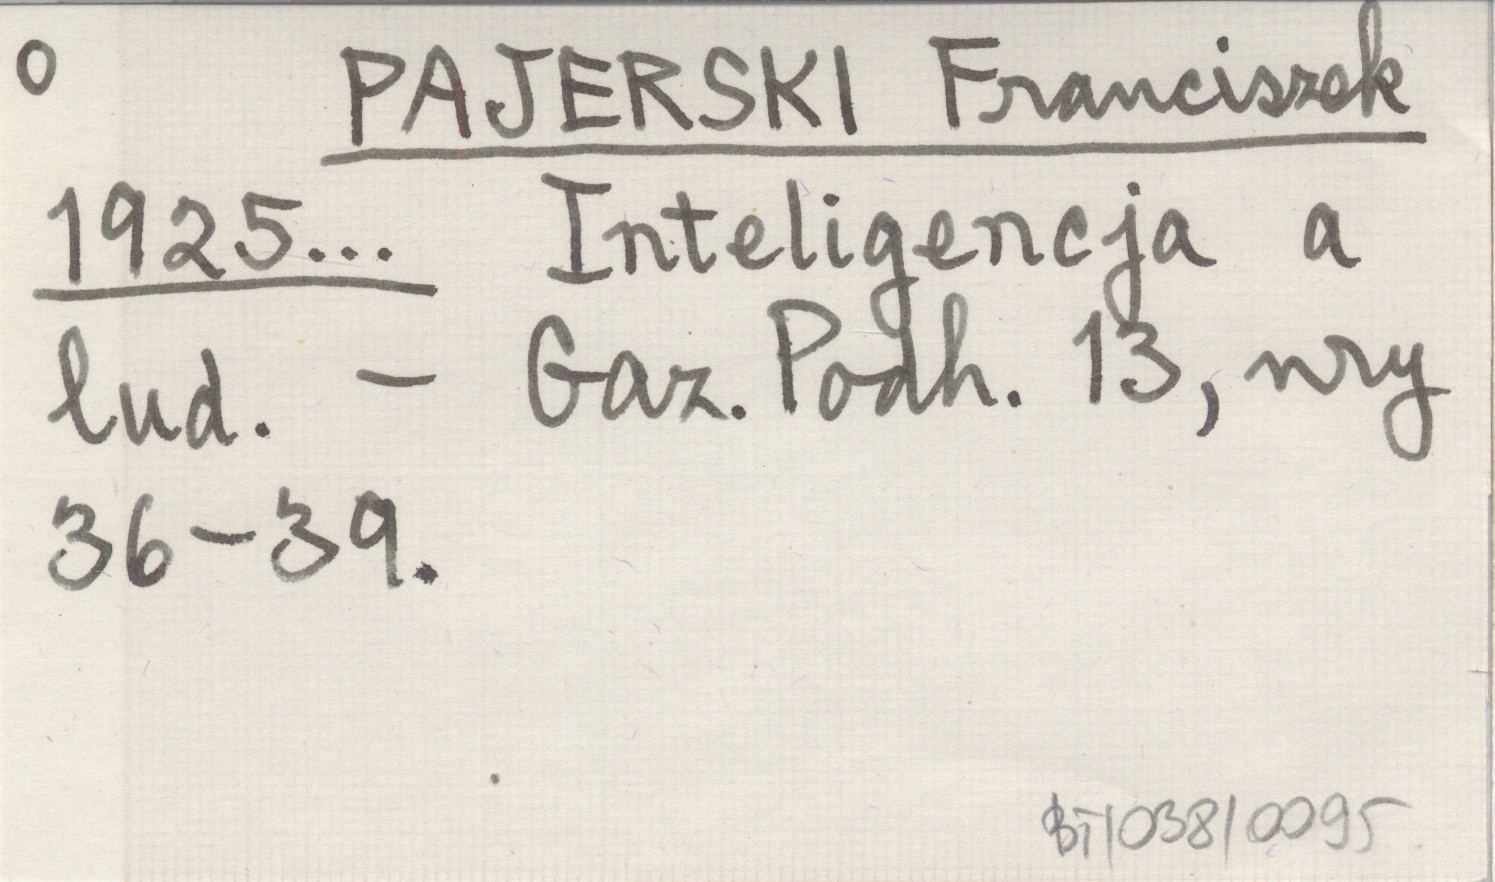 o PAJERSKI Franciszek
1925... Inteligencja a
lud. – Gaz. Podh. 13, nry
36–39.
BT/038/0095